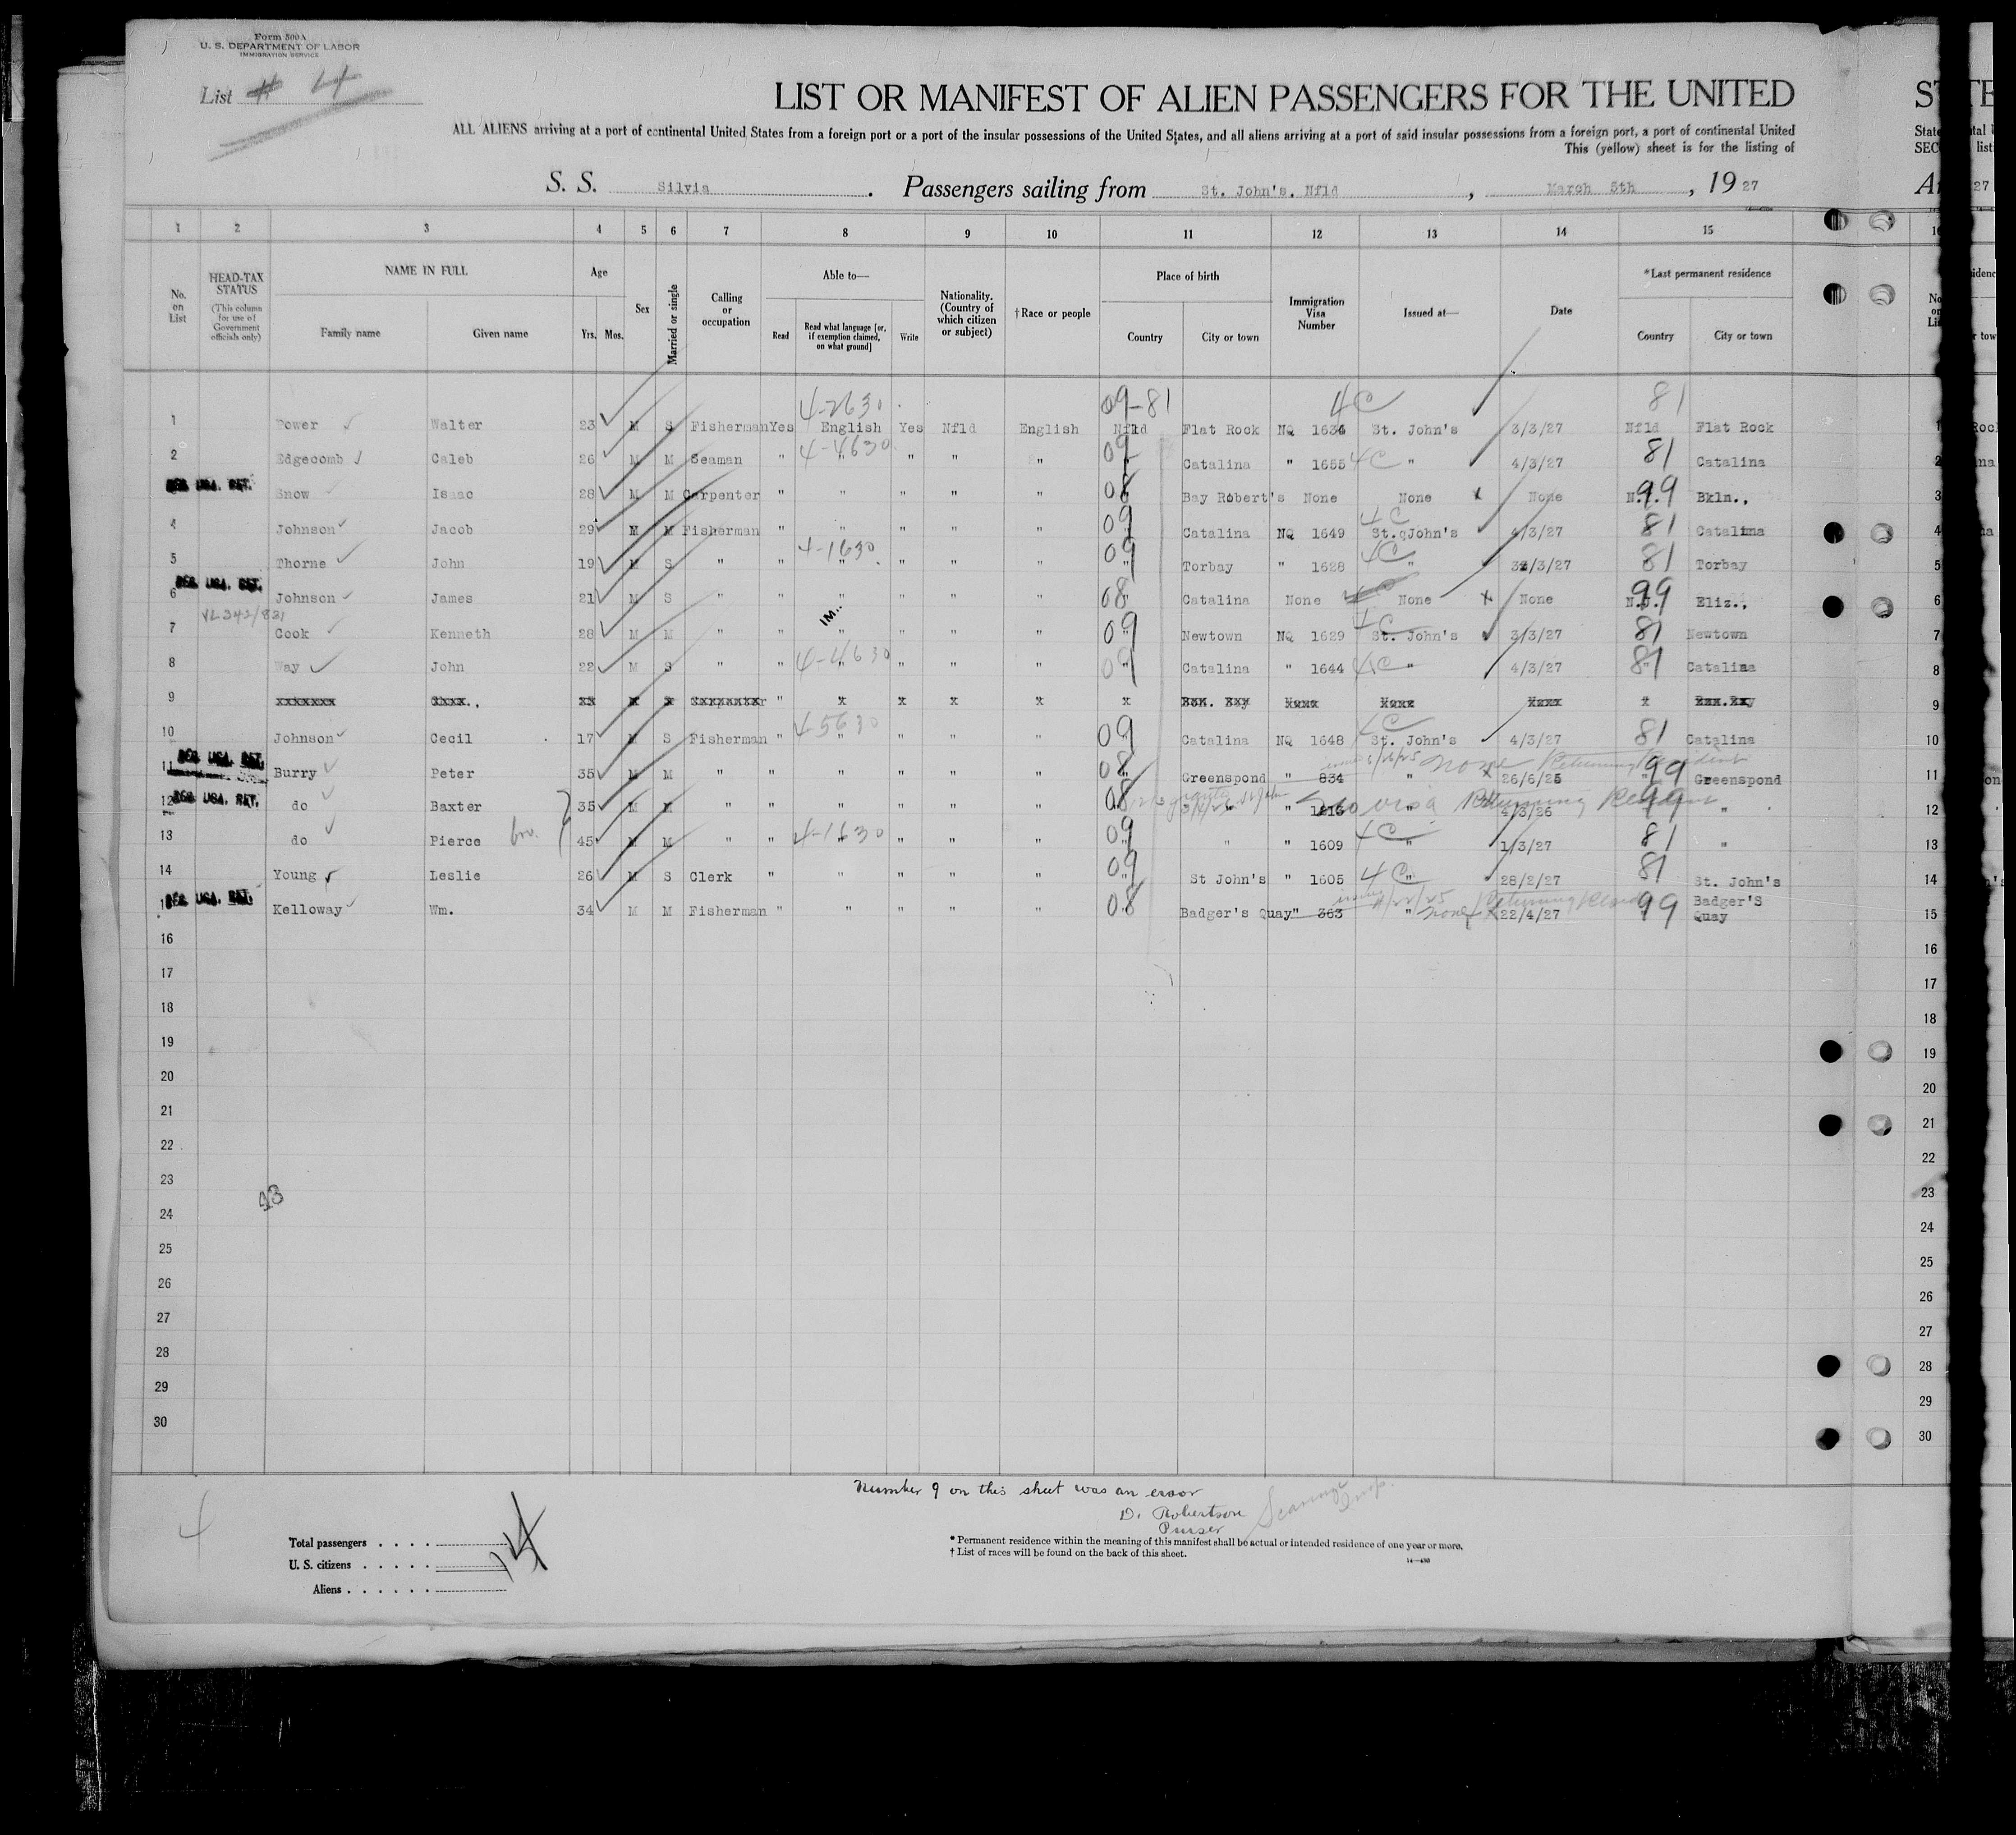 Form 500A
U. S. DEPARTMENT OF LABOR
IMMIGRATION SERVICE
List # 4
LIST OR MANIFEST OF ALIEN PASSENGERS FOR THE UNITED
ALL ALIENS arriving at a port of continental United States from a foreign port or a port of the insular possessions of the United States, and all aliens arriving at a port of said insular possessions from a foreign port, a port of continental United
This (yellow) sheet is for the listing of
S. S. Silvia. Passengers sailing from St. John's, Nfld, March 5th, 19 27
1 2 3 4 5 6 7 8 9 10 11 12 13 14 15
No. on List
HEAD-TAX STATUS (This column for use of Government officials only)
NAME IN FULL Family name Given name
Age Yrs. Mos.
Sex
Married or single
Calling or occupation
Able to— Read Read what language [or, if exemption claimed, on what ground] Write
Nationality. (Country of which citizen or subject)
†Race or people
Place of birth Country City or town
Immigration Visa Number
Issued at—
Date
*Last permanent residence Country City or town
4-2630 09-81 4C 81
1 Power Walter 23 M S Fisherman Yes English Yes Nfld English Nfld Flat Rock NQ 1634 St. John's 3/3/27 Nfld Flat Rock
2 Edgecomb Caleb 26 M M Seaman " 4-4630 " " " " 09 Catalina " 1655 4C " 4/3/27 81 Catalina
3 Snow Isaac 28 M M Carpenter " " " " " 08 Bay Robert's None None x None N.Y. 99 Bkln.,
4 Johnson Jacob 29 M M Fisherman " " " " " 09 Catalina NQ 1649 4C St. John's 4/3/27 81 Catalina
5 Thorne John 19 M S " " 4-1630 " " " 09 Torbay " 1628 4C " 3/3/27 81 Torbay
6 Johnson James 21 M S " " " " " " 08 Catalina None None x None 99 Eliz.,
VL342/831
7 Cook Kenneth 28 M M " " " " " " 09 Newtown NQ 1629 4C St. John's 3/3/27 81 Newtown
8 Way John 22 M S " " 4-4630 " " " 09 Catalina " 1644 4C " 4/3/27 81 Catalina
9
10 Johnson Cecil 17 M S Fisherman " 4-5630 " " " 09 Catalina NQ 1648 4C St. John's 4/3/27 81 Catalina
11 Burry Peter 35 M M " " " " " " 08 Greenspond " 834 " None Returning Resident 26/6/25 99 Greenspond
12 do Baxter 35 M M " " " " " " 08 " No visa Returning Resident 4/3/26 99 "
13 do Pierce bro. 45 M M " " 4-1630 " " " 09 " " 1609 4C " 1/3/27 81 "
14 Young Leslie 26 M S Clerk " " " " " 09 St John's " 1605 4C " 28/2/27 81 St. John's
15 Kelloway Wm. 34 M M Fisherman " " " " " 08 Badger's Quay " 363 " None Returning 22/4/27 99 Badger'S Quay
16
17
18
19
20
21
22
23
24
25
26
27
28
29
30
Number 9 on this sheet was an error
D. Robertson
Purser
4
Total passengers
U. S. citizens
Aliens
14
* Permanent residence within the meaning of this manifest shall be actual or intended residence of one year or more.
† List of races will be found on the back of this sheet.